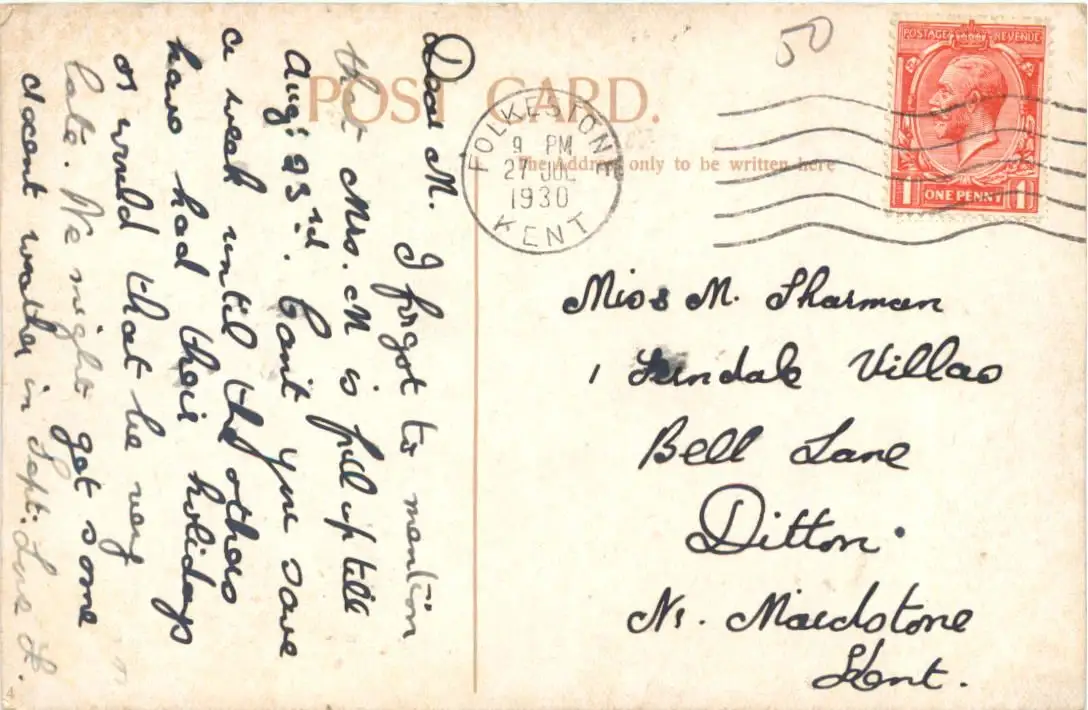 50
POSTAGE REVENUE
1 ONE PENNY 1
POST CARD.
The Address only to be written here
FOLKESTONE
9 PM
27 JUL
1930
KENT
Dear M.
I forgot to mention
that Mrs. M is full up till
Aug: 23rd. Can't you save
a week until the others
have had their holidays
or would that be very
late. We might get some
decent weather in Sept: Love L.
Miss M. Sharman
1 Villas
Bell Lane
Ditton.
Nr. Maidstone
Kent.
4